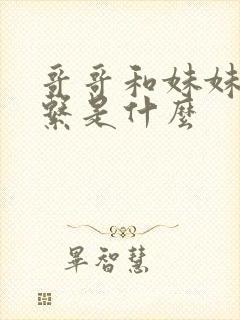 哥哥和妹妹
繫是什麼
畢智慧